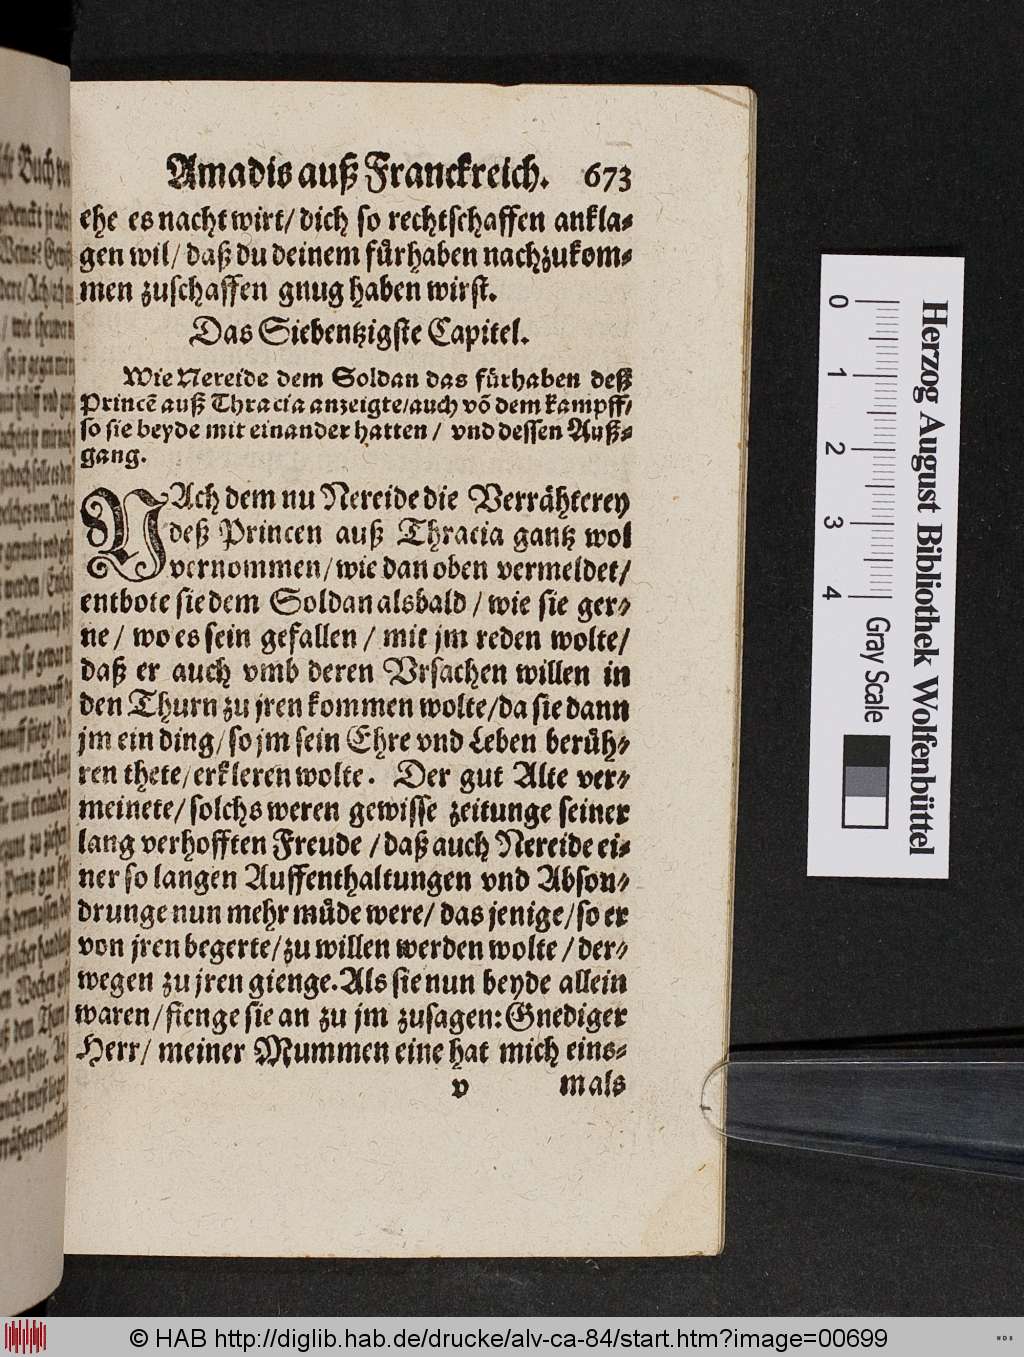 Amadis auß Franckreich. 673
ehe es nacht wirt/ dich so rechtschaffen ankla-
gen wil/ daß du deinem fürhaben nachzukom-
men zuschaffen gnug haben wirst.
Das Siebentzigste Capitel.
Wie Nereide dem Soldan das fürhaben deß
Princē auß Thracia anzeigte/ auch võ dem kampff/
so sie beyde mit einander hatten/ vnd dessen Auß-
gang.
NAch dem nu Nereide die Verrähterey
deß Princen auß Thracia gantz wol
vernommen/ wie dan oben vermeldet/
entbote sie dem Soldan alsbald/ wie sie ger-
ne/ wo es sein gefallen/ mit jm reden wolte/
daß er auch vmb deren Vrsachen willen in
den Thurn zu jren kommen wolte/ da sie dann
jm ein ding/ so jm sein Ehre vnd Leben berüh-
ren thete/ erkleren wolte. Der gut Alte ver-
meinete/ solchs weren gewisse zeitunge seiner
lang verhofften Freude/ daß auch Nereide ei-
ner so langen Auffenthaltungen vnd Abson-
drunge nun mehr müde were/ das jenige/ so er
von jren begerte/ zu willen werden wolte/ der-
wegen zu jren gienge. Als sie nun beyde allein
waren/ fienge sie an zu jm zusagen: Gnediger
Herr/ meiner Mummen eine hat mich eins-
v mals
0 1 2 3 4
Gray Scale
Herzog August Bibliothek Wolfenbüttel
© HAB http://diglib.hab.de/drucke/alv-ca-84/start.htm?image=00699